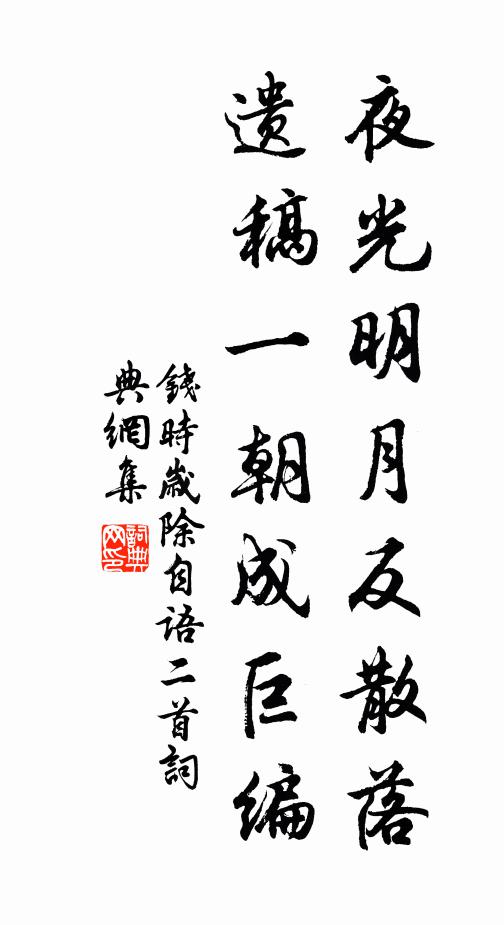 夜光明月反散落
遗稿一朝成巨编
錢時歲除自语二首詞
典網集
詞典
网印